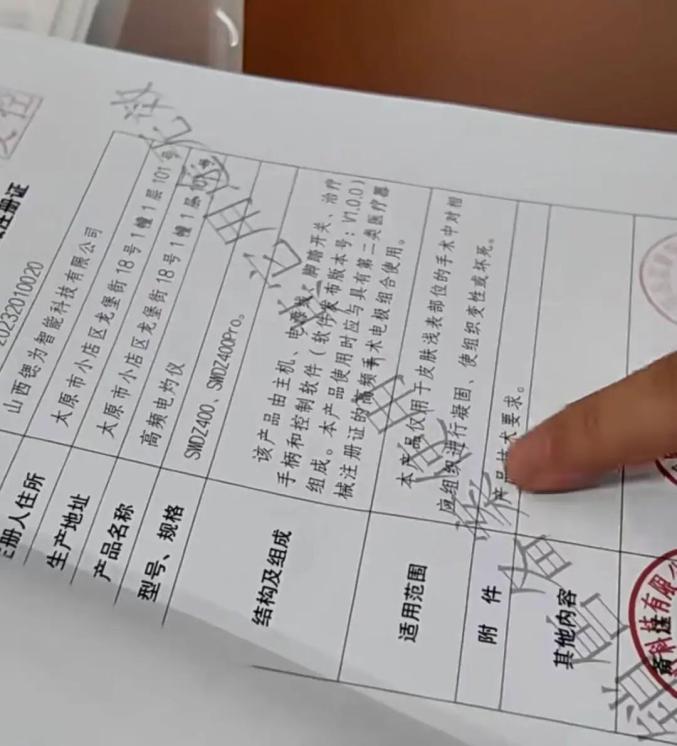 注册证
20232010020
山西锶为智能科技有限公司
注册人住所
太原市小店区龙堡街18号1幢1层101号
生产地址
太原市小店区龙堡街18号1幢1层101号
产品名称
高频电灼仪
型号、规格
SWDZ400、SWDZ400Pro。
结构及组成
该产品由主机、电源线、脚踏开关、治疗
手柄和控制软件（软件发布版本号：V1.0.0）
组成。本产品使用时应与具有第二类医疗器
械注册证的高频手术电极组合使用。
适用范围
本产品仅用于皮肤浅表部位的手术中对相
应组织进行凝固、使组织变性或坏死。
附 件
产品技术要求。
其他内容
科技有限